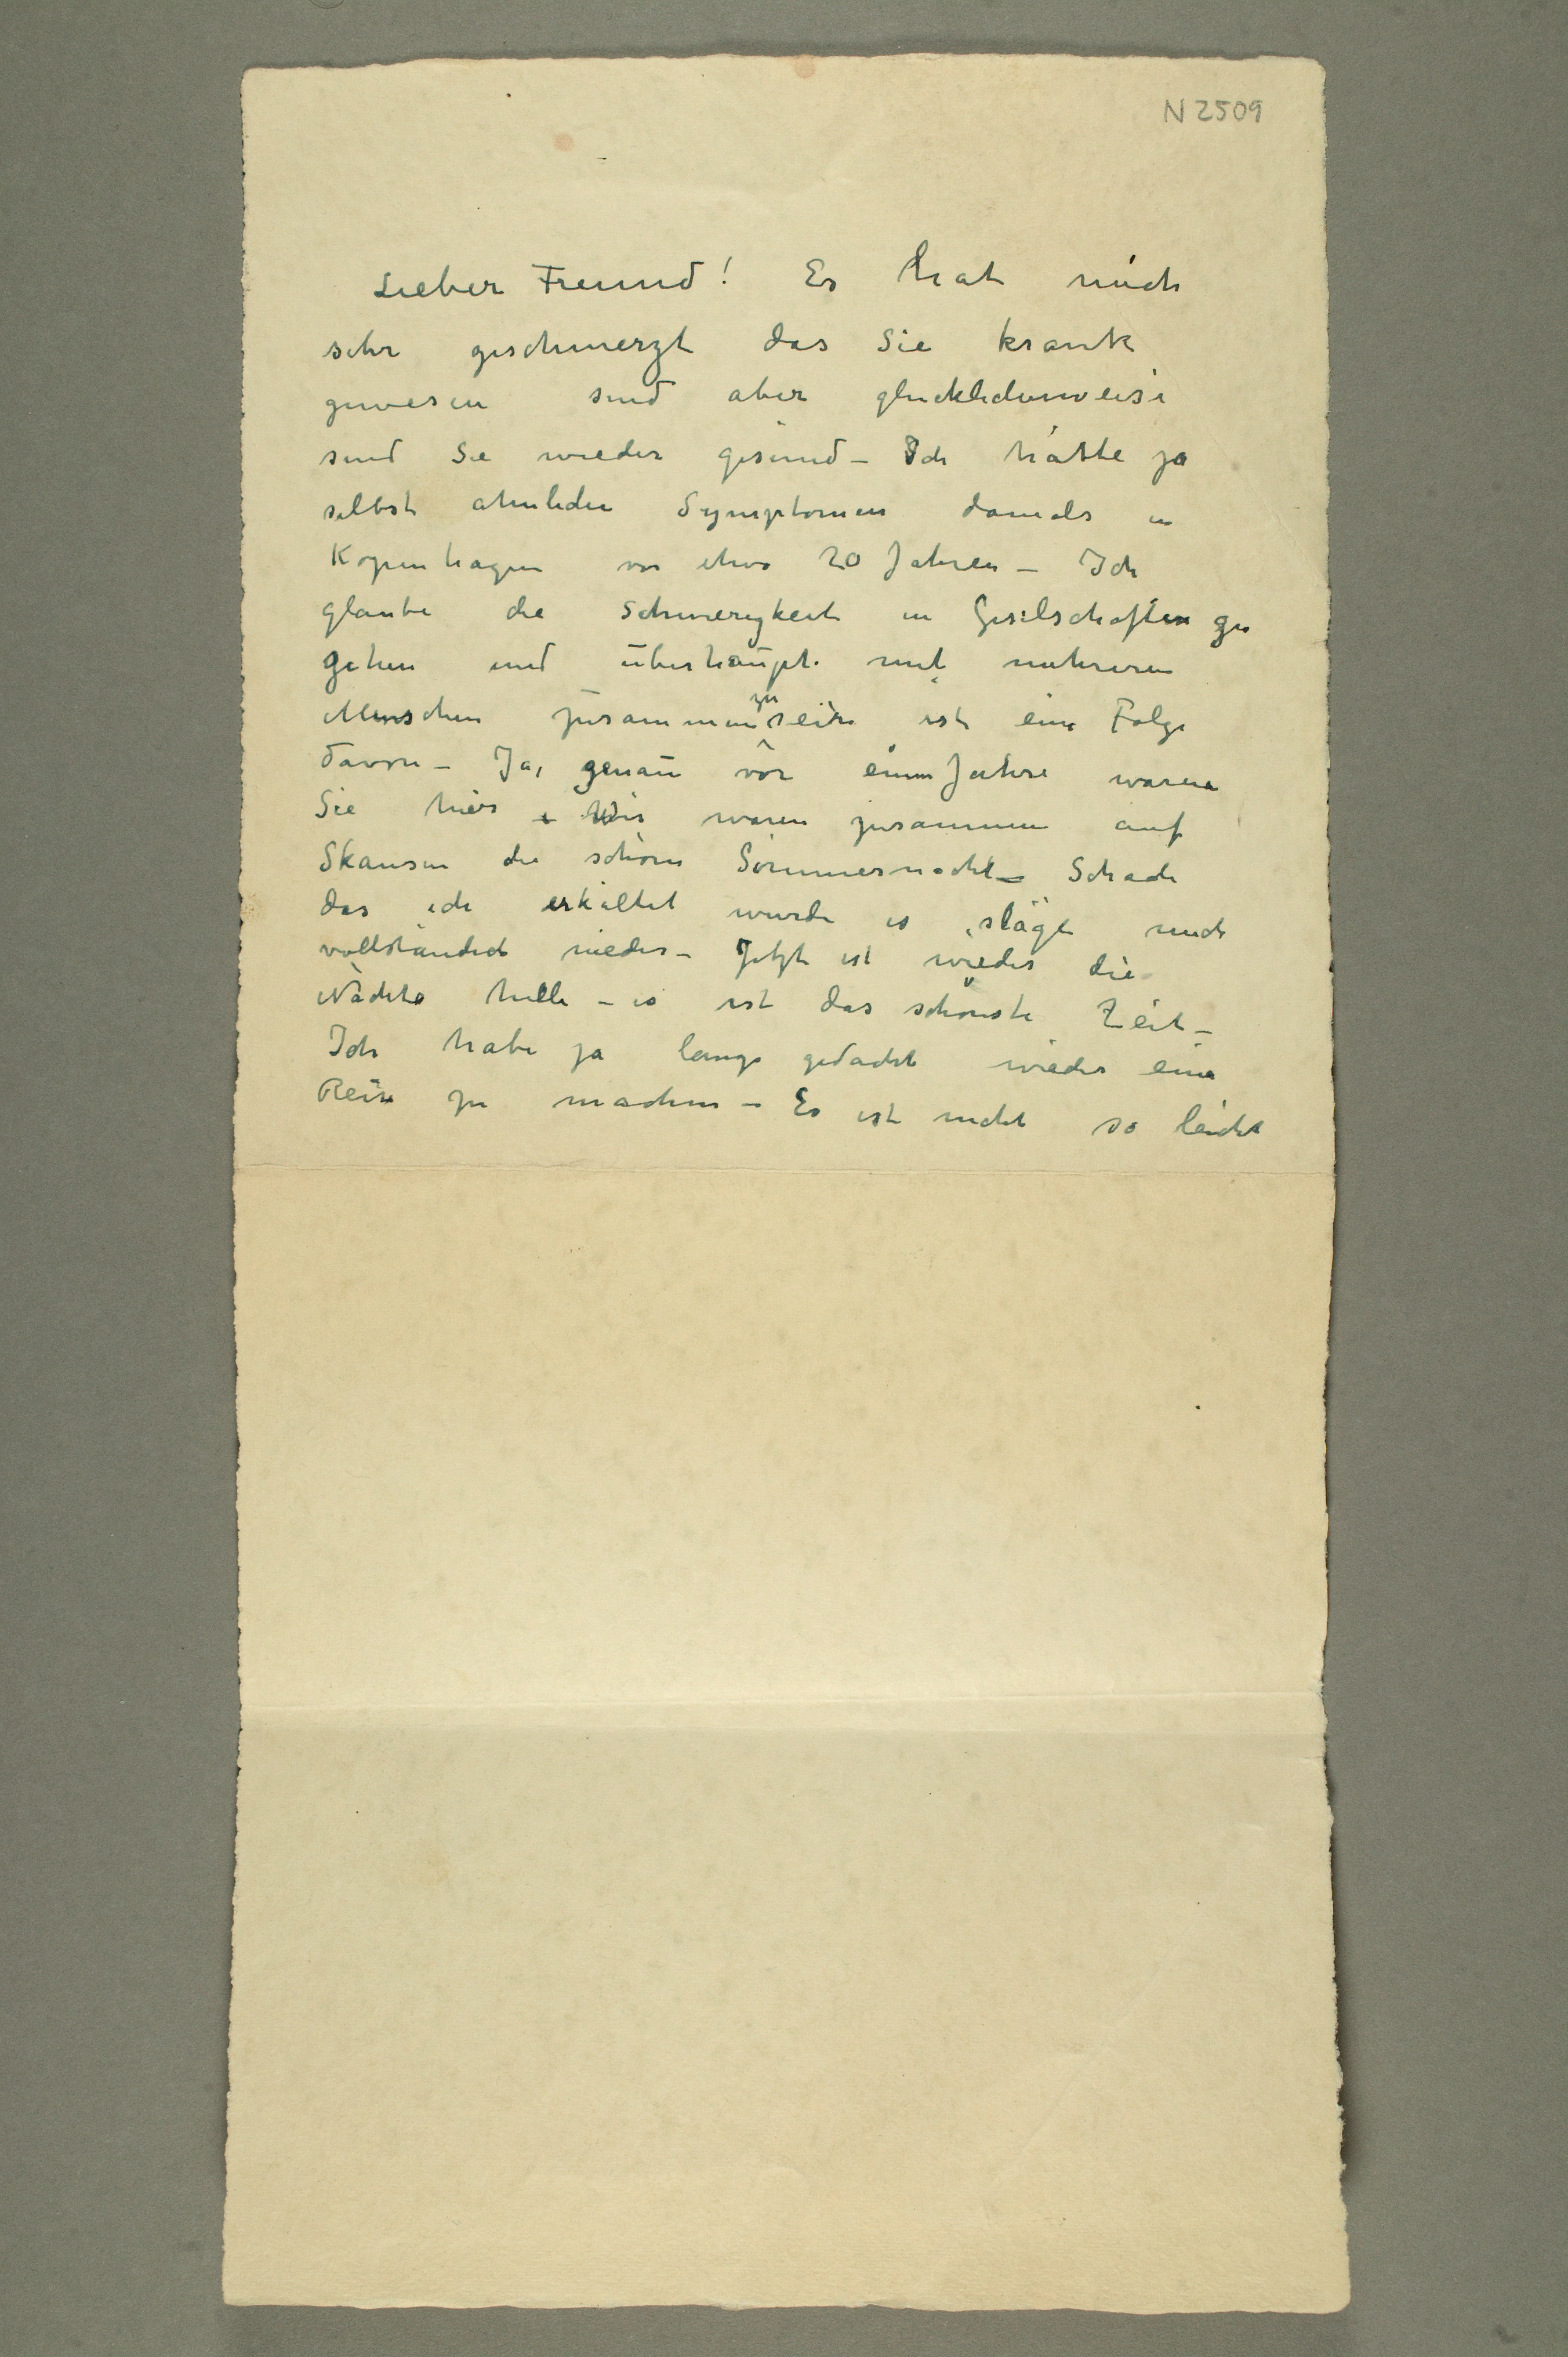 N 2509
Lieber Freund! Es hat mich
sehr geschmerzt das Sie krank
gewesen sind aber glücklichenweise
sind Sie wieder gesund – Ich hatte ja
selbst ähnliche Symptomen damals in
Kopenhagen vor etwa 20 Jahren – Ich
glaube die Schwierigkeit in Geselschaften zu
gehen und überhaupt mit mehreren
Menschen zusammen zu sein ist eine Folge
davon – Ja, genau vor einem Jahre waren
Sie hier Wir waren zusammen auf
Skansen die schöne Sommernacht – Schade
das ich erkältet wurde es slägt mich
vollständich nieder – Jetzt ist wieder die
Nächte helle – es ist das schönste Zeit –
Ich habe ja lange gedacht wieder eine
Reise zu machen – Es ist nicht so leicht